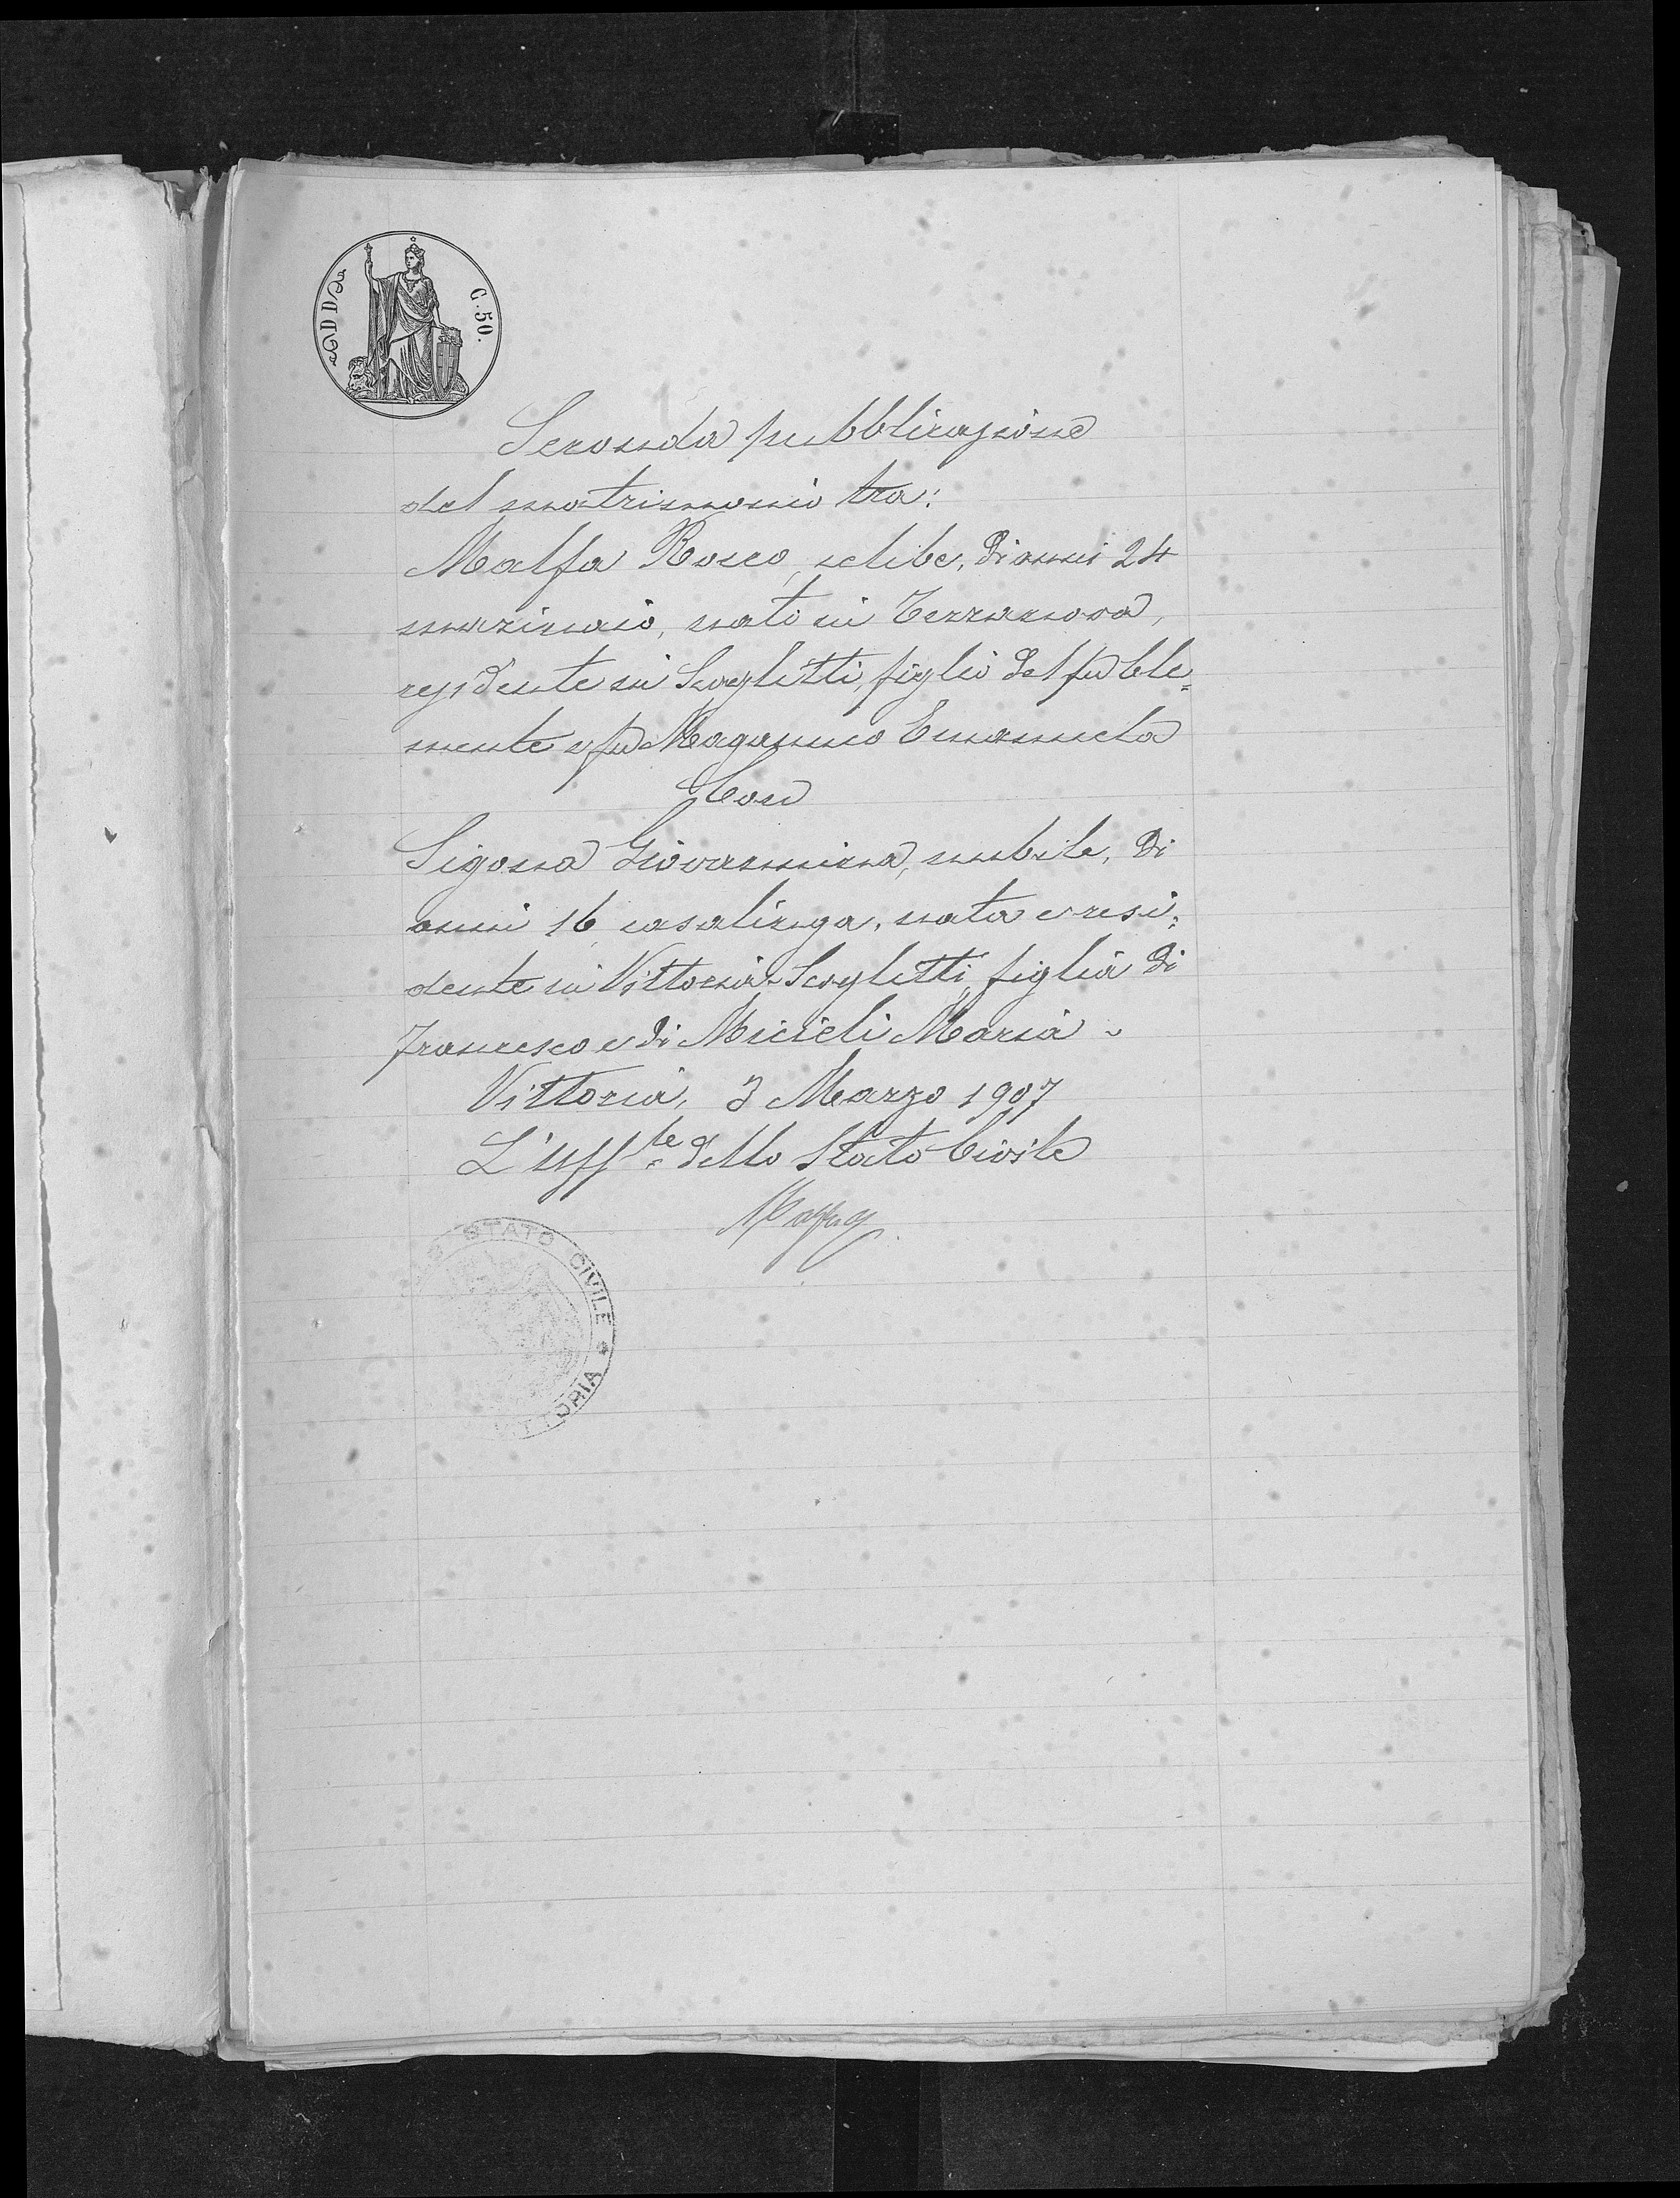 C. 50.
DD
Seconda pubblicazione
del matrimonio tra:
Malfa Rocco, celibe, di anni 24
marinaio, nato in Terranova,
residente in Scoglitti, figlio del fu Cle=
mente e fu Maganuco Emanuela
Con
Sigona Giovannina, nubile, di
anni 16, casalinga, nata e resi=
dente in Vittoria-Scoglitti, figlia di
Francesco e di Micieli Maria -
Vittoria, 3 Marzo 1907
L'Uff.le dello Stato Civile
STATO CIVILE
VITTORIA